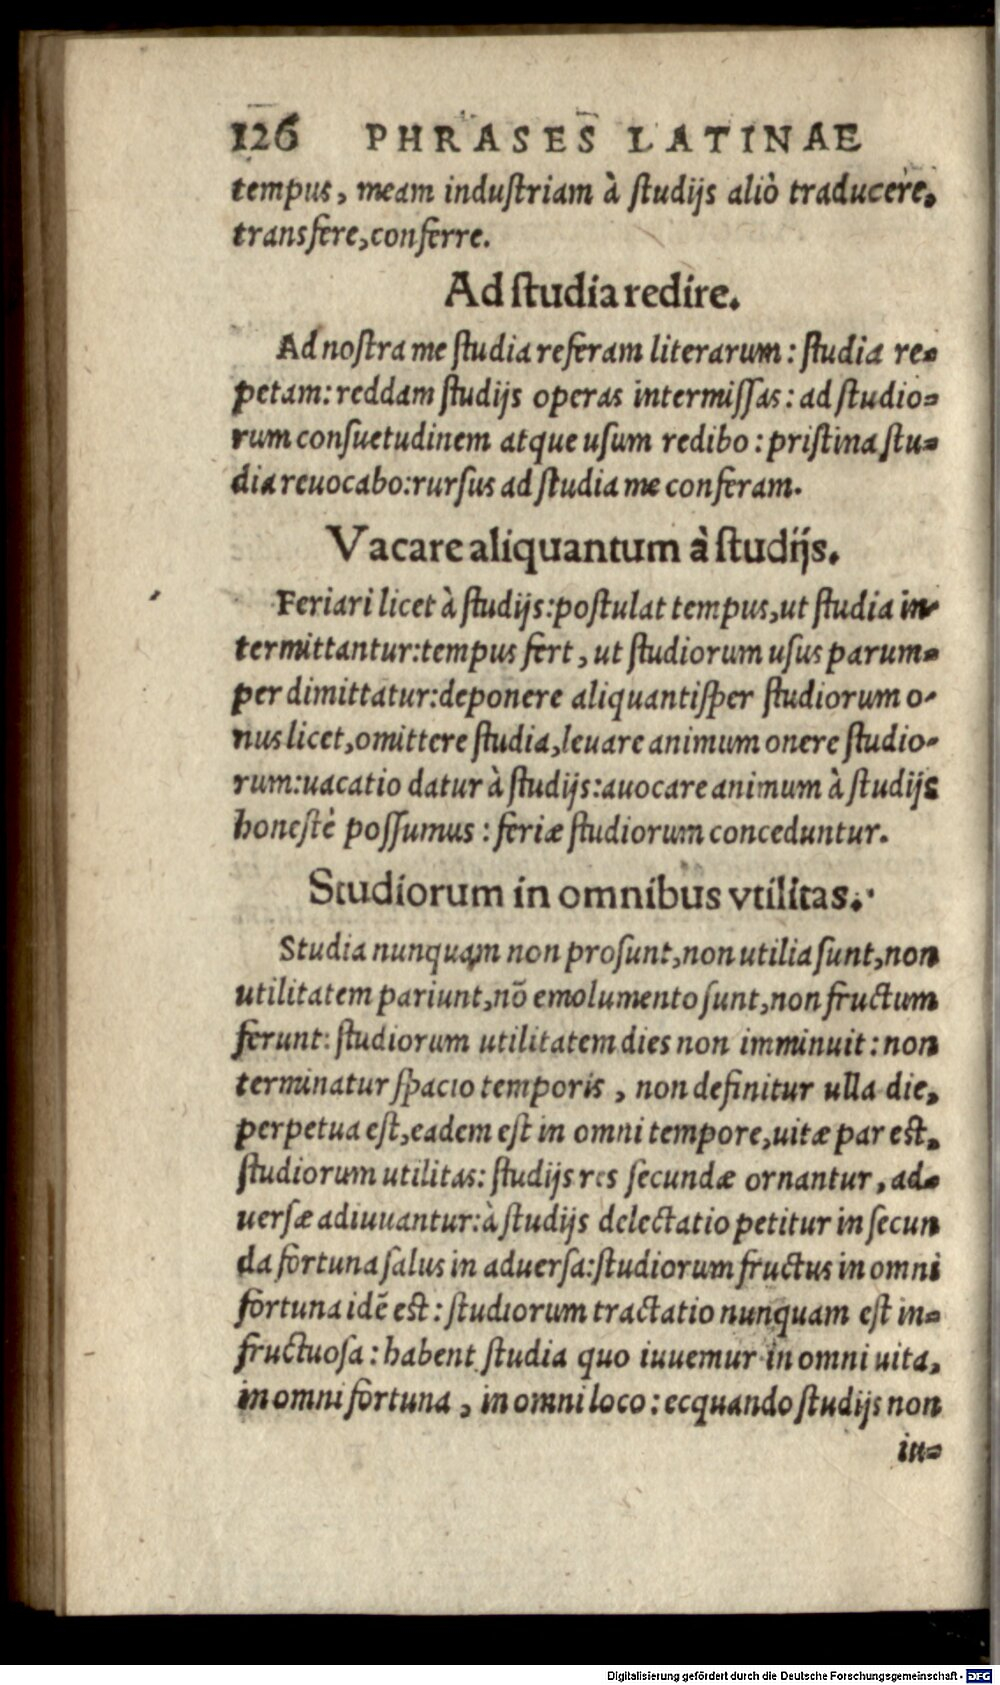 126 PHRASES LATINAE
tempus, meam industriam à studijs aliò traducere,
transfere, conferre.
Ad studia redire.
Ad nostra me studia referam literarum: studia re-
petam: reddam studijs operas intermissas: ad studio-
rum consuetudinem atque usum redibo: pristina stu-
dia reuocabo: rursus ad studia me conferam.
Vacare aliquantum à studijs.
Feriari licet à studijs: postulat tempus, ut studia in-
termittantur: tempus fert, ut studiorum usus parum-
per dimittatur: deponere aliquantisper studiorum o-
nus licet, omittere studia, leuare animum onere studio-
rum: uacatio datur à studijs: auocare animum à studijs
honestè possumus: feriæ studiorum conceduntur.
Studiorum in omnibus vtilitas.
Studia nunquam non prosunt, non utilia sunt, non
utilitatem pariunt, nō emolumento sunt, non fructum
ferunt: studiorum utilitatem dies non imminuit: non
terminatur spacio temporis, non definitur ulla die,
perpetua est, eadem est in omni tempore, uitæ par est,
studiorum utilitas: studijs res secundæ ornantur, ad-
uersæ adiuuantur: à studijs delectatio petitur in secun
da fortuna salus in aduersa: studiorum fructus in omni
fortuna idē est: studiorum tractatio nunquam est in-
fructuosa: habent studia quo iuuemur in omni uita,
in omni fortuna, in omni loco: ecquando studijs non
iu-
Digitalisierung gefördert durch die Deutsche Forschungsgemeinschaft - DFG